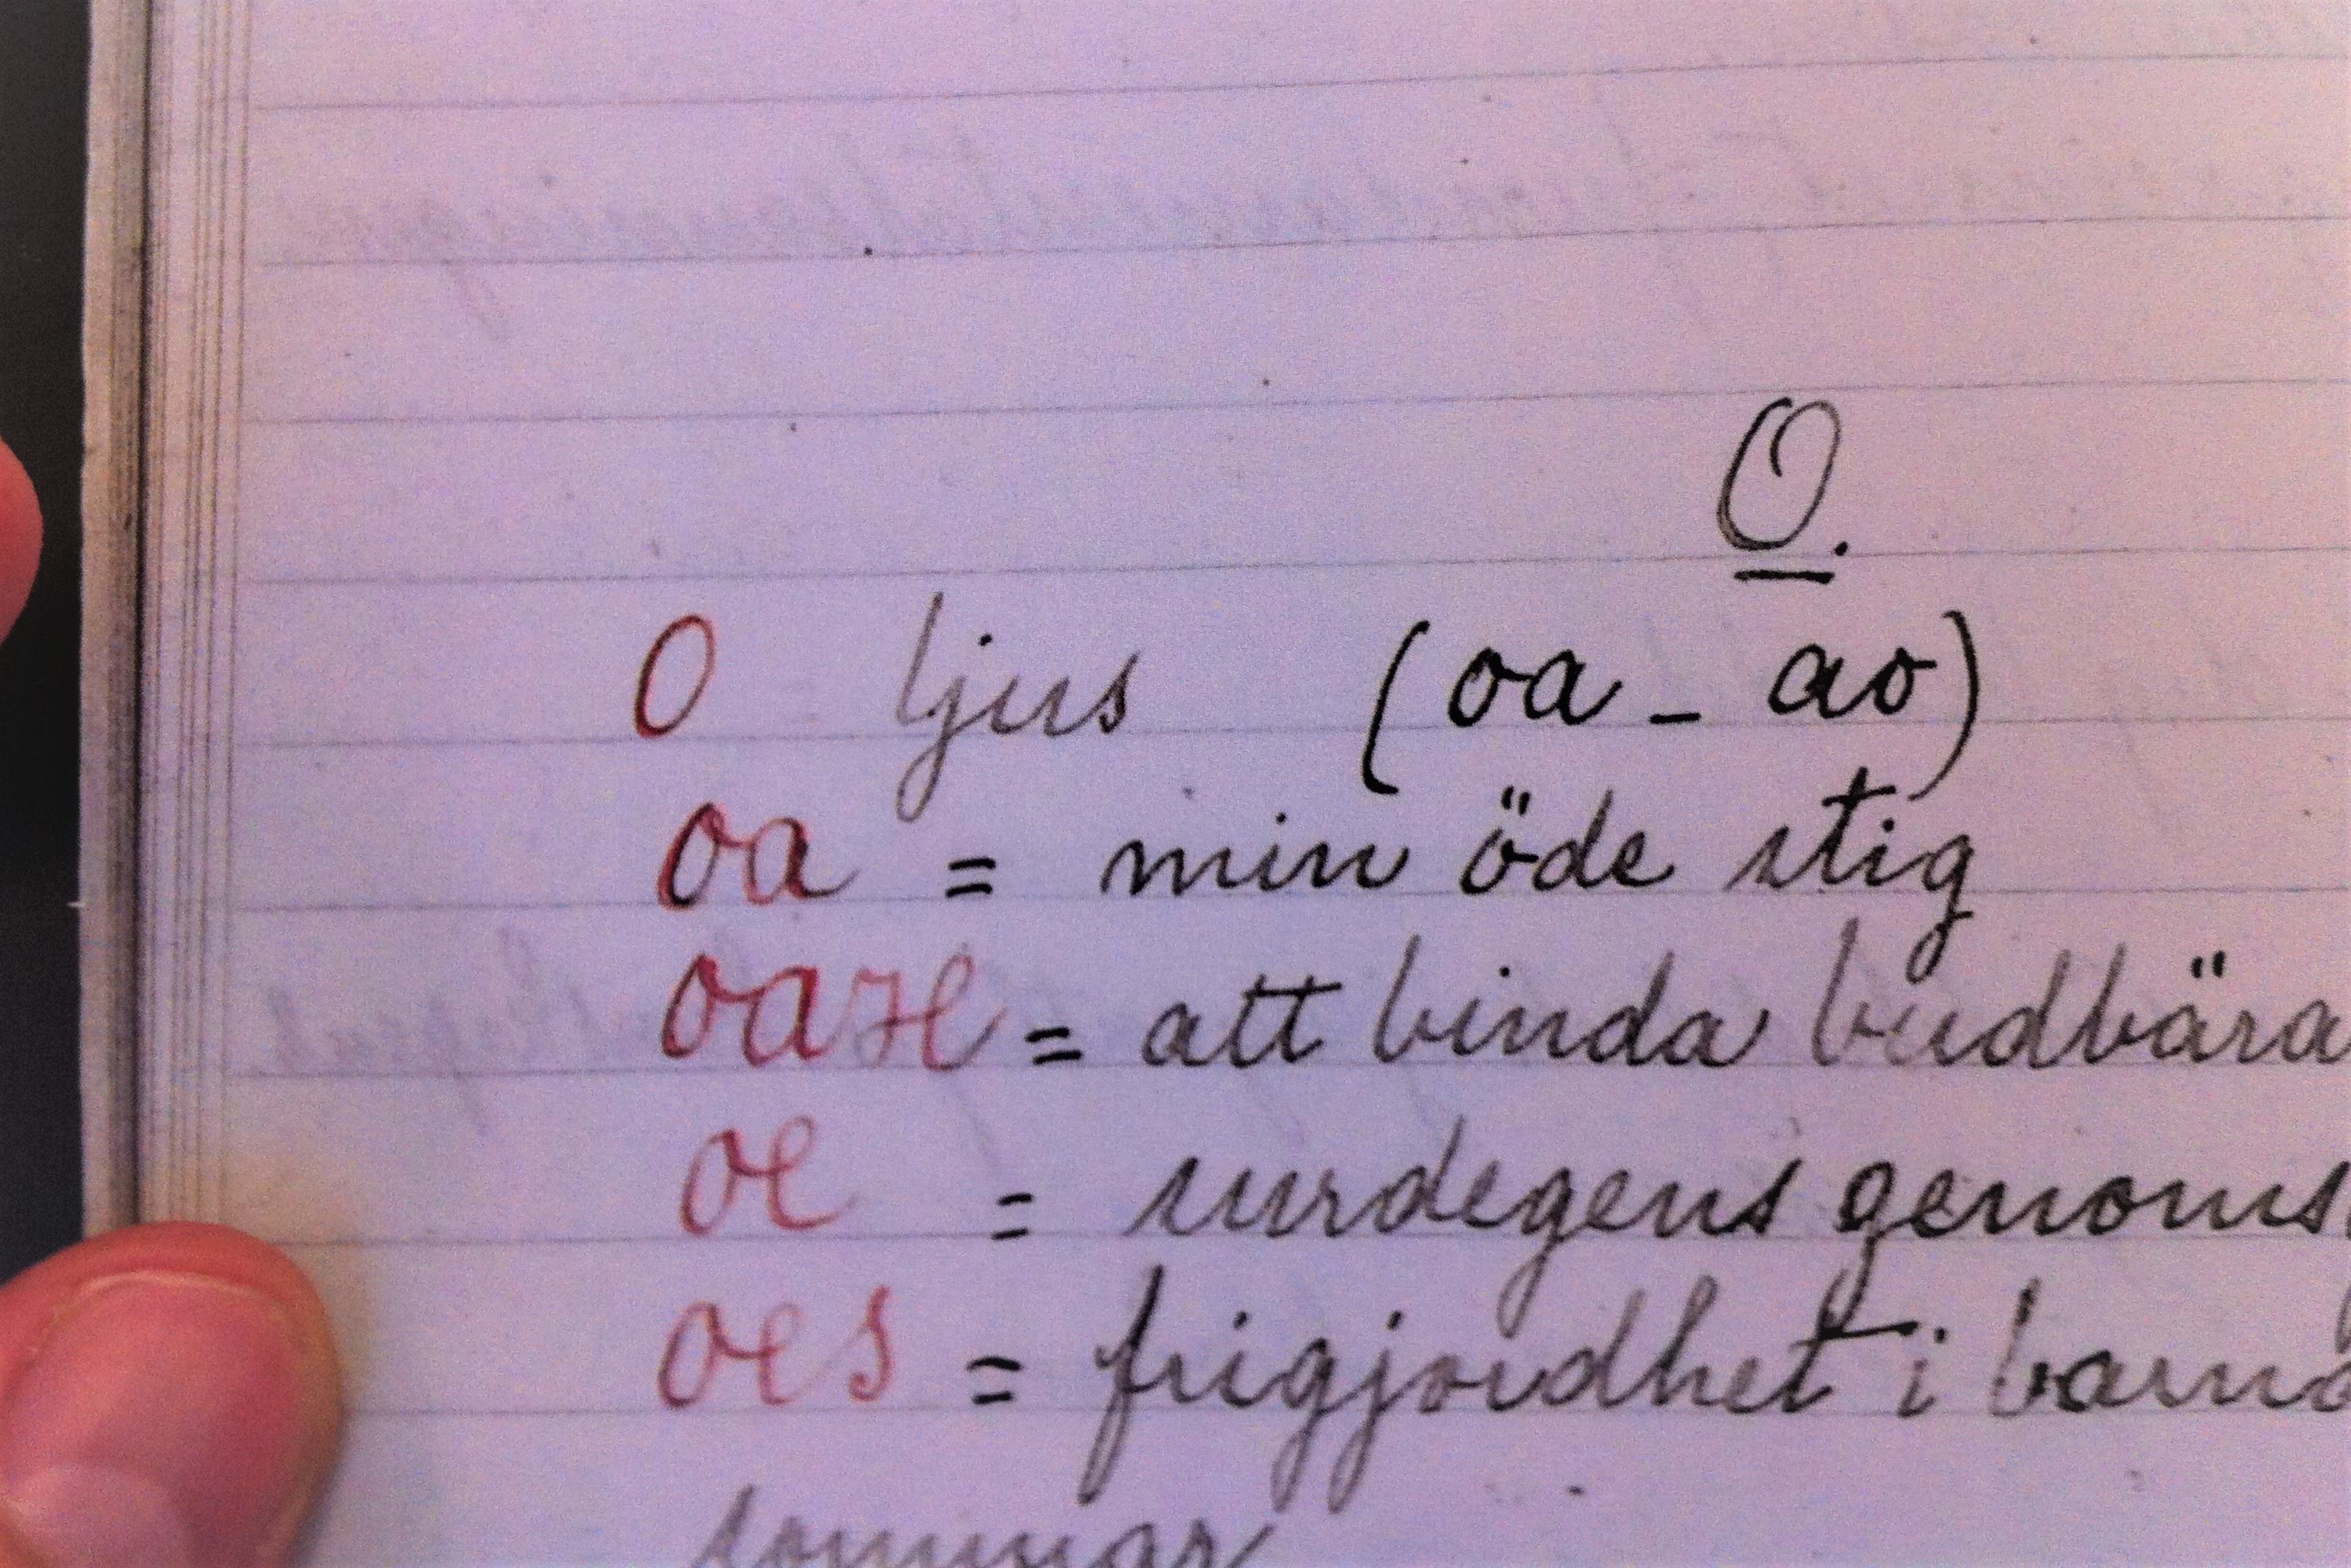 O.
O ljus (oa - ao)
oa = min öde stig
oaH = att binda budbära
oe = surdegens genoms
oes = frigjordhet i barnd
sommar